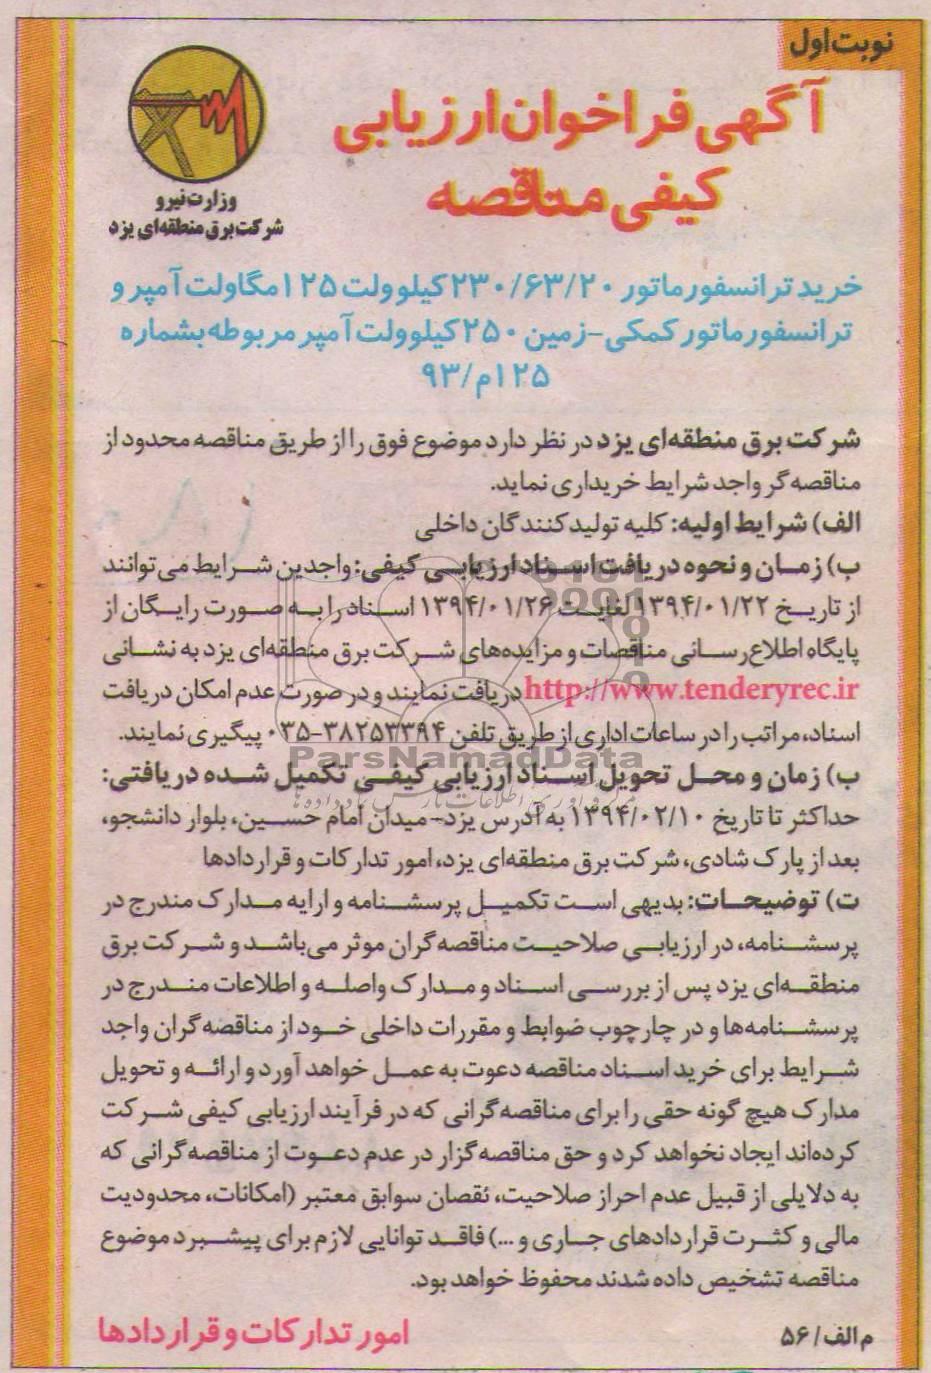 نوبت اول
آگهی فراخوان ارزیابی
کیفی مناقصه
وزارت نیرو
شرکت برق منطقه‌ای یزد
خرید ترانسفورماتور ۲۳۰/۶۳/۲۰ کیلوولت ۱۲۵ مگاولت آمپر و
ترانسفورماتور کمکی-زمین ۲۵۰ کیلوولت آمپر مربوطه بشماره
۱۲۵م/۹۳
شرکت برق منطقه‌ای یزد در نظر دارد موضوع فوق را از طریق مناقصه محدود از
مناقصه‌گر واجد شرایط خریداری نماید.
الف) شرایط اولیه: کلیه تولیدکنندگان داخلی
ب) زمان و نحوه دریافت اسناد ارزیابی کیفی: واجدین شرایط می‌توانند
از تاریخ ۱۳۹۴/۰۱/۲۲ لغایت ۱۳۹۴/۰۱/۲۶ اسناد را به صورت رایگان از
پایگاه اطلاع‌رسانی مناقصات و مزایده‌های شرکت برق منطقه‌ای یزد به نشانی
http://www.tenderyrec.ir دریافت نمایند و در صورت عدم امکان دریافت
اسناد، مراتب را در ساعات اداری از طریق تلفن ۳۸۲۵۳۳۹۴-۰۳۵ پیگیری نمایند.
ParsNamadData
ب) زمان و محل تحویل اسناد ارزیابی کیفی تکمیل شده دریافتی:
حداکثر تا تاریخ ۱۳۹۴/۰۲/۱۰ به آدرس یزد- میدان امام حسین، بلوار دانشجو،
بعد از پارک شادی، شرکت برق منطقه‌ای یزد، امور تدارکات و قراردادها
ت) توضیحات: بدیهی است تکمیل پرسشنامه و ارایه مدارک مندرج در
پرسشنامه، در ارزیابی صلاحیت مناقصه‌گران موثر می‌باشد و شرکت برق
منطقه‌ای یزد پس از بررسی اسناد و مدارک واصله و اطلاعات مندرج در
پرسشنامه‌ها و در چارچوب ضوابط و مقررات داخلی خود از مناقصه‌گران واجد
شرایط برای خرید اسناد مناقصه دعوت به عمل خواهد آورد و ارائه و تحویل
مدارک هیچ گونه حقی را برای مناقصه‌گرانی که در فرآیند ارزیابی کیفی شرکت
کرده‌اند ایجاد نخواهد کرد و حق مناقصه‌گزار در عدم دعوت از مناقصه‌گرانی که
به دلایلی از قبیل عدم احراز صلاحیت، نقصان سوابق معتبر (امکانات، محدودیت
مالی و کثرت قراردادهای جاری و ...) فاقد توانایی لازم برای پیشبرد موضوع
مناقصه تشخیص داده شدند محفوظ خواهد بود.
م الف/۵۶
امور تدارکات و قراردادها